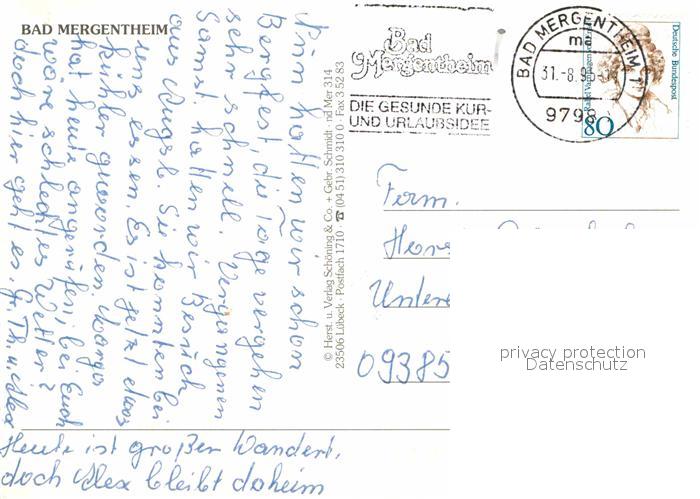 BAD MERGENTHEIM
Nun hatten wir schon
Bergfest, die Tage vergehen
sehr schnell. Vergangenen
Samst. hatten wir Besuch
aus Augsb. Sie konnten bei
uns essen. Es ist jetzt etwas
kühler geworden. Margo
hat heute angerufen, bei Euch
wäre schlechtes Wetter?
doch hier geht es. G. Th. u. Alex
Heute ist großer Wandert,
doch Alex bleibt daheim
© Herst. u. Verlag Schöning & Co. + Gebr. Schmidt · nd Mer 314
23506 Lübeck · Postfach 1710 · ☎ (04 51) 310 310 0 · Fax 3 52 83
Bad
Mergentheim
DIE GESUNDE KUR-
UND URLAUBSIDEE
BAD MERGENTHEIM 1
ma
31.-8.9
9798
Deutsche Bundespost
80
Fam.
Unter
09385
privacy protection
Datenschutz